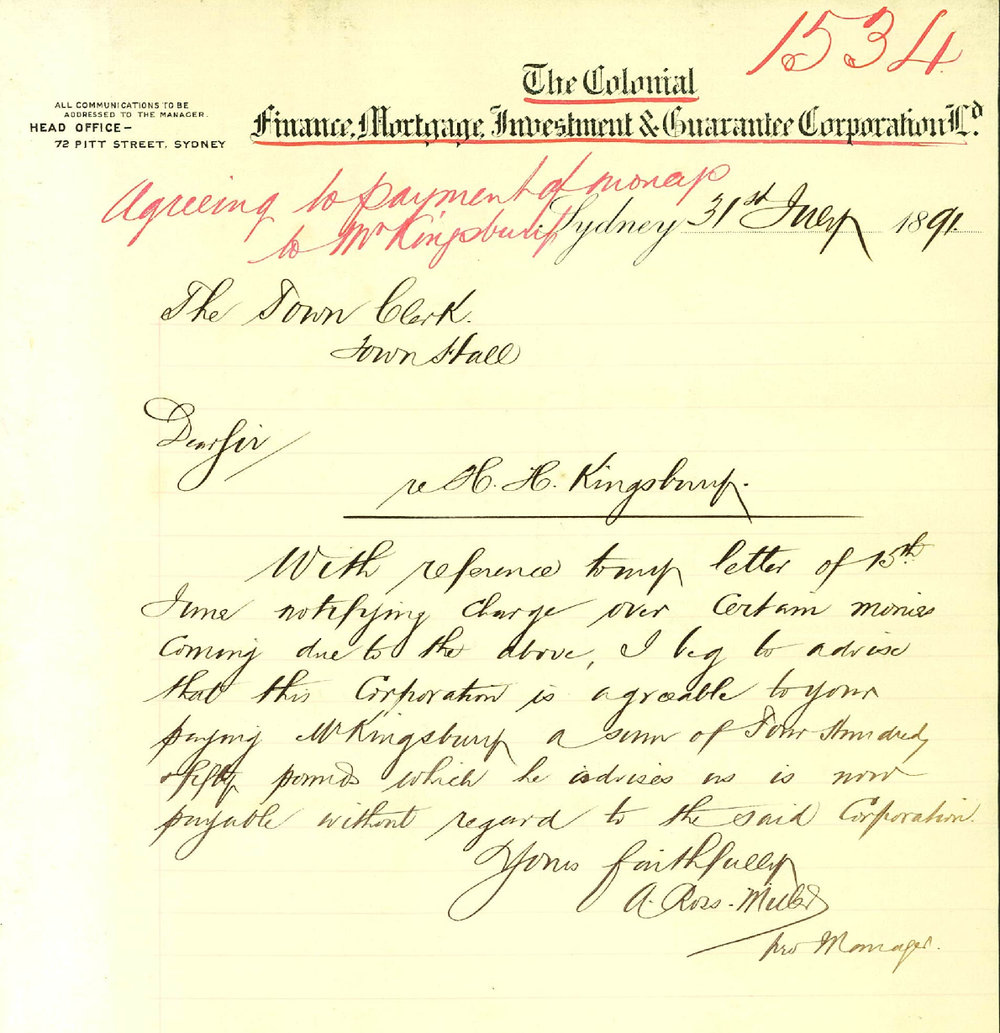 1534
The Colonial
Finance, Mortgage, Investment & Guarantee Corporation Ld.
ALL COMMUNICATIONS TO BE
ADDRESSED TO THE MANAGER.
HEAD OFFICE –
72 PITT STREET, SYDNEY
Agreeing to payment of moneys
to Mr Kingsbury
Sydney 31st July 1891.
The Town Clerk.
Town Hall
Dear Sir
re H. H. Kingsbury.
With reference to my letter of 15th
June notifying charge over certain monies
coming due to the above, I beg to advise
that this Corporation is agreeable to your
paying Mr Kingsbury a sum of Four Hundred
& fifty pounds which he advises us is now
payable without regard to the said Corporation.
Yours faithfully
A. Ross-
pro Manager.